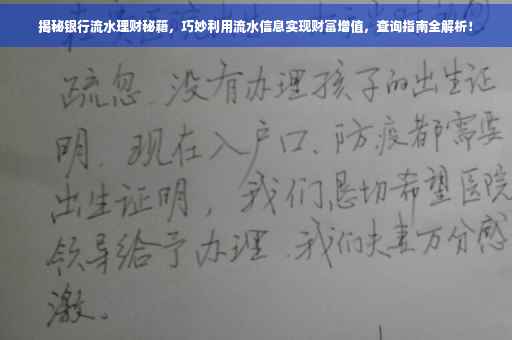 揭秘银行流水理财秘籍，巧妙利用流水信息实现财富增值，查询指南全解析！
疏忽、没有办理孩子的出生证
明、现在入户口、防疫都需要
出生证明，我们恳切希望医院
领导给予办理、我们夫妻万分感
激。